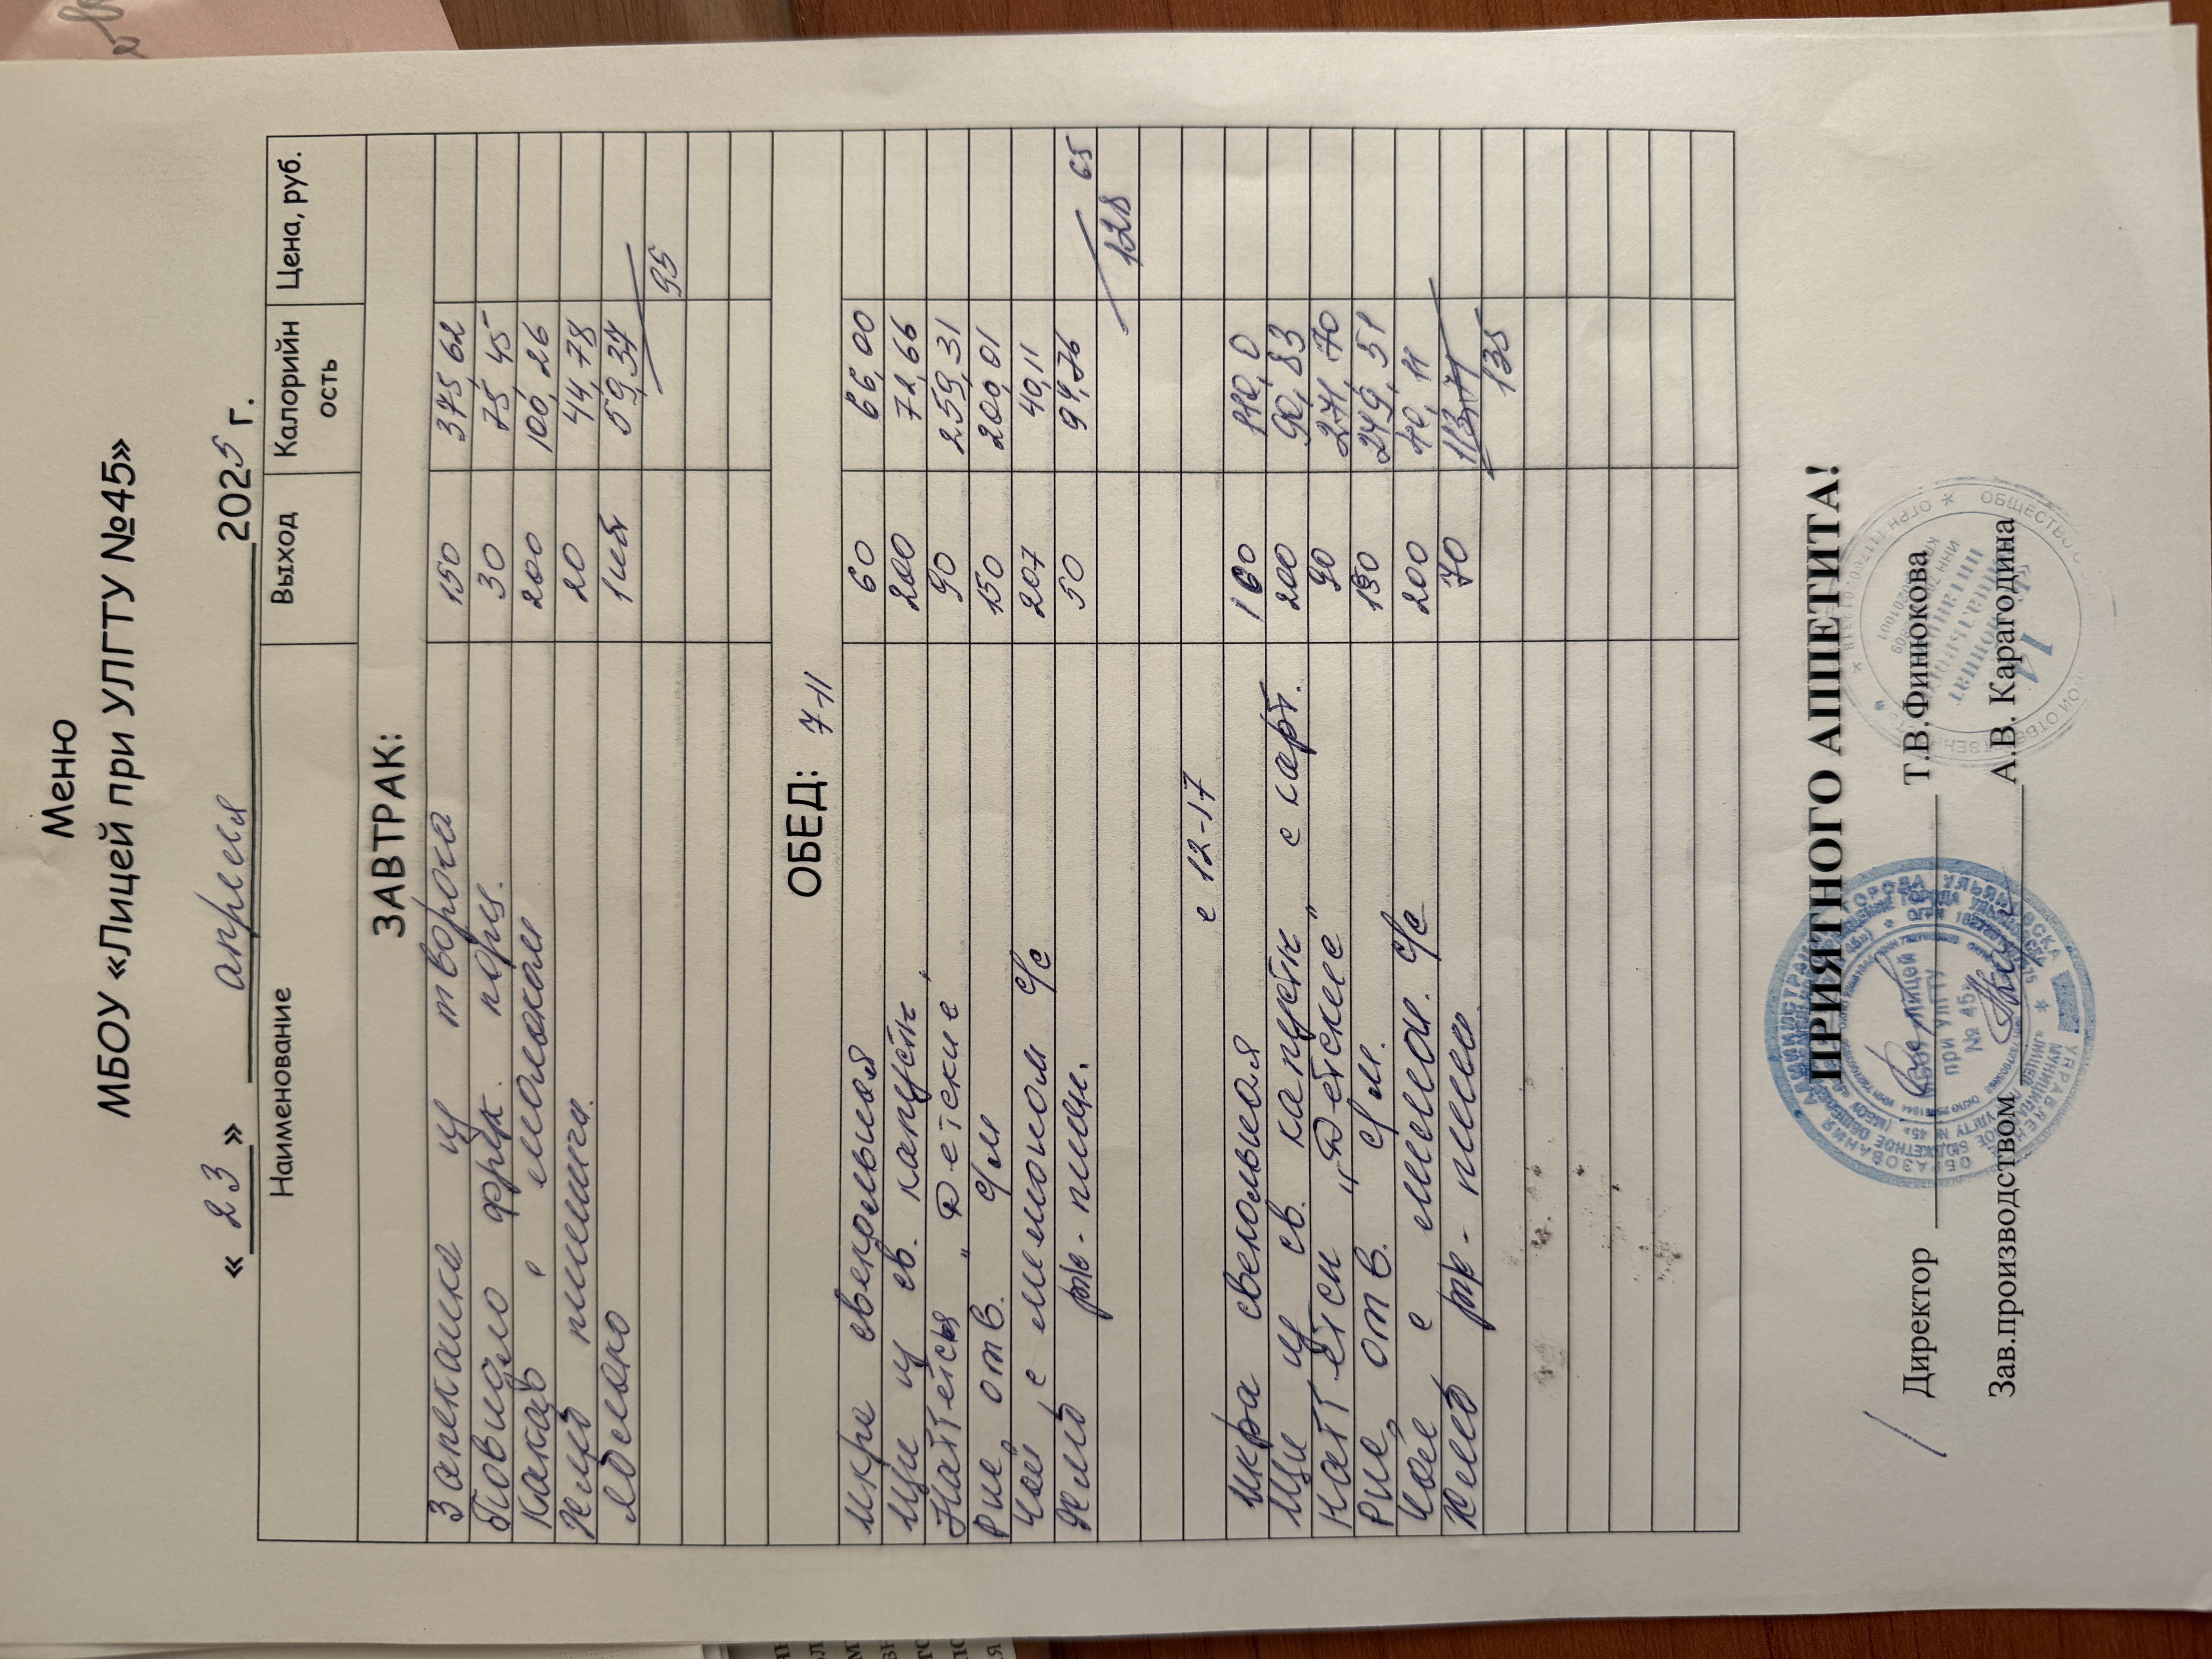 Меню
МБОУ «Лицей при УЛГТУ №45»
« 23 » апреля 2025 г.
Наименование Выход Калорийность Цена, руб.
ЗАВТРАК:
Запеканка из творога 150 375 62
Повидло фрук. порц. 30 75,45
Какао с молоком 200 100,26
Хлеб пшенич. 20 44,78
Молоко 1шт 59,34
95
ОБЕД: 7-11
Икра свекольная 60 66,00
Щи из св. капусты 200 72,66
Наггетсы "Детские" 90 259,31
Рис отв. с/м 150 200,01
Чай с лимоном с/с 207 40,11
Хлеб рж-пшен. 50 94,76 65
128
с 12-17
Икра свекольная 100 110,0
Щи из св. капусты с карт. 200 90,83
Наггетсы "Детские" 90 271,70
Рис отв. с/м. 150 249,51
Чай с лимон. с/с 200 40,11
Хлеб рж-пшен 70 113,71
135
ПРИЯТНОГО АППЕТИТА!
Директор Т.В.Финюкова
Зав.производством А.В. Карагодина
МБОУ ЛИЦЕЙ
ПРИ УЛГТУ
№ 45